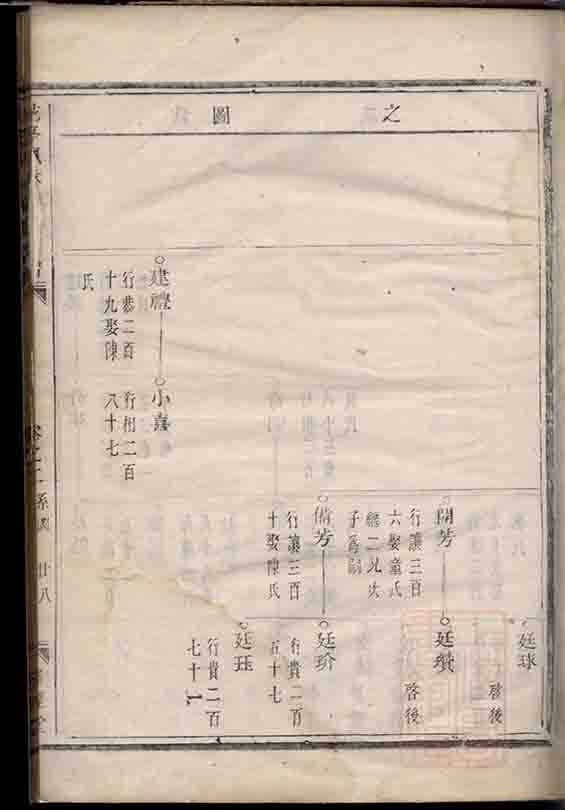 之圖
廷球
啓後
開芳
行讓三百
六娶童氏
繼二兄次
子爲嗣
廷瓚
啓後
備芳
行讓三百
十娶陳氏
廷玠
行貴二百
五十七
廷珏
行貴二百
七十
建禮
行恭二百
十九娶陳
氏
小喜
行相二百
八十七
卷之二
系圖
廿八